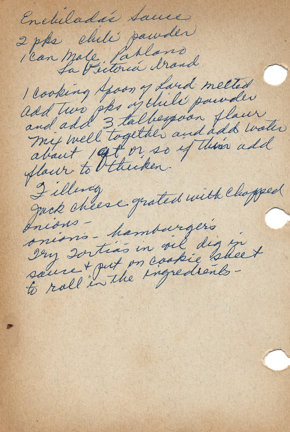 Enchiladas Sauce
2 pks chili powder
1 can Mole Poblano
La Victoria Brand
1 cooking spoon of lard melted
add two pks of chile powder
and add 3 talbespoon flour
mix well together and add water
about 1 qt or so if thin add
flour to thicken.
Filling
Jack cheese grated with chopped
onions-
onions - hamburgers
Fry Tortias in oil dig in
sauce + put on cookie sheet
to roll in the ingredients-